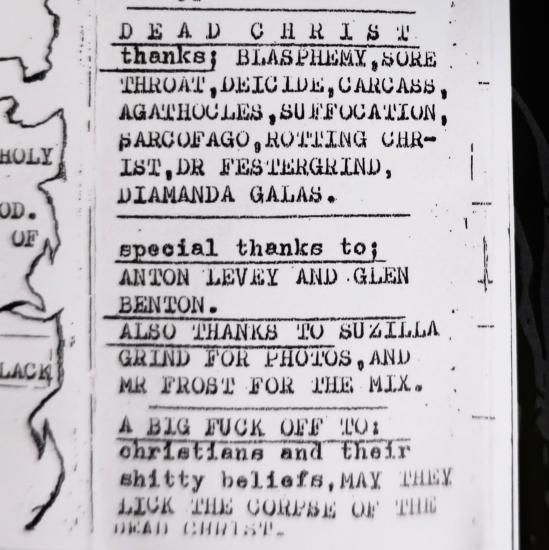 D E A D   C H R I S T
thanks; BLASPHEMY,SORE
THROAT,DEICIDE,CARCASS,
AGATHOCLES,SUFFOCATION,
SARCOFAGO,ROTTING CHR-
IST,DR FESTERGRIND,
DIAMANDA GALAS.
special thanks to;
ANTON LEVEY AND GLEN
BENTON.
ALSO THANKS TO SUZILLA
GRIND FOR PHOTOS,AND
MR FROST FOR THE MIX.
A BIG FUCK OFF TO:
christians and their
shitty beliefs,MAY THEY
LICK THE CORPSE OF THE
DEAD CHRIST.
HOLY
OD.
OF
LACK